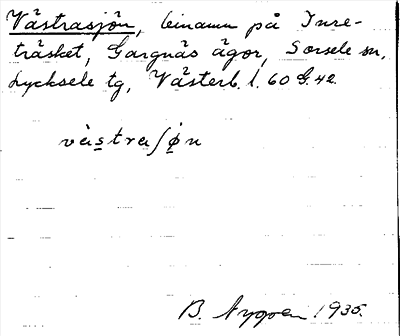 Västrasjön, binamn på Inre-
träsket, Gargnäs ägor, Sorsele sn,
Lycksele tg, Västerb. l. 60 G. 42.
västraʃön
B. Nygren 1935.